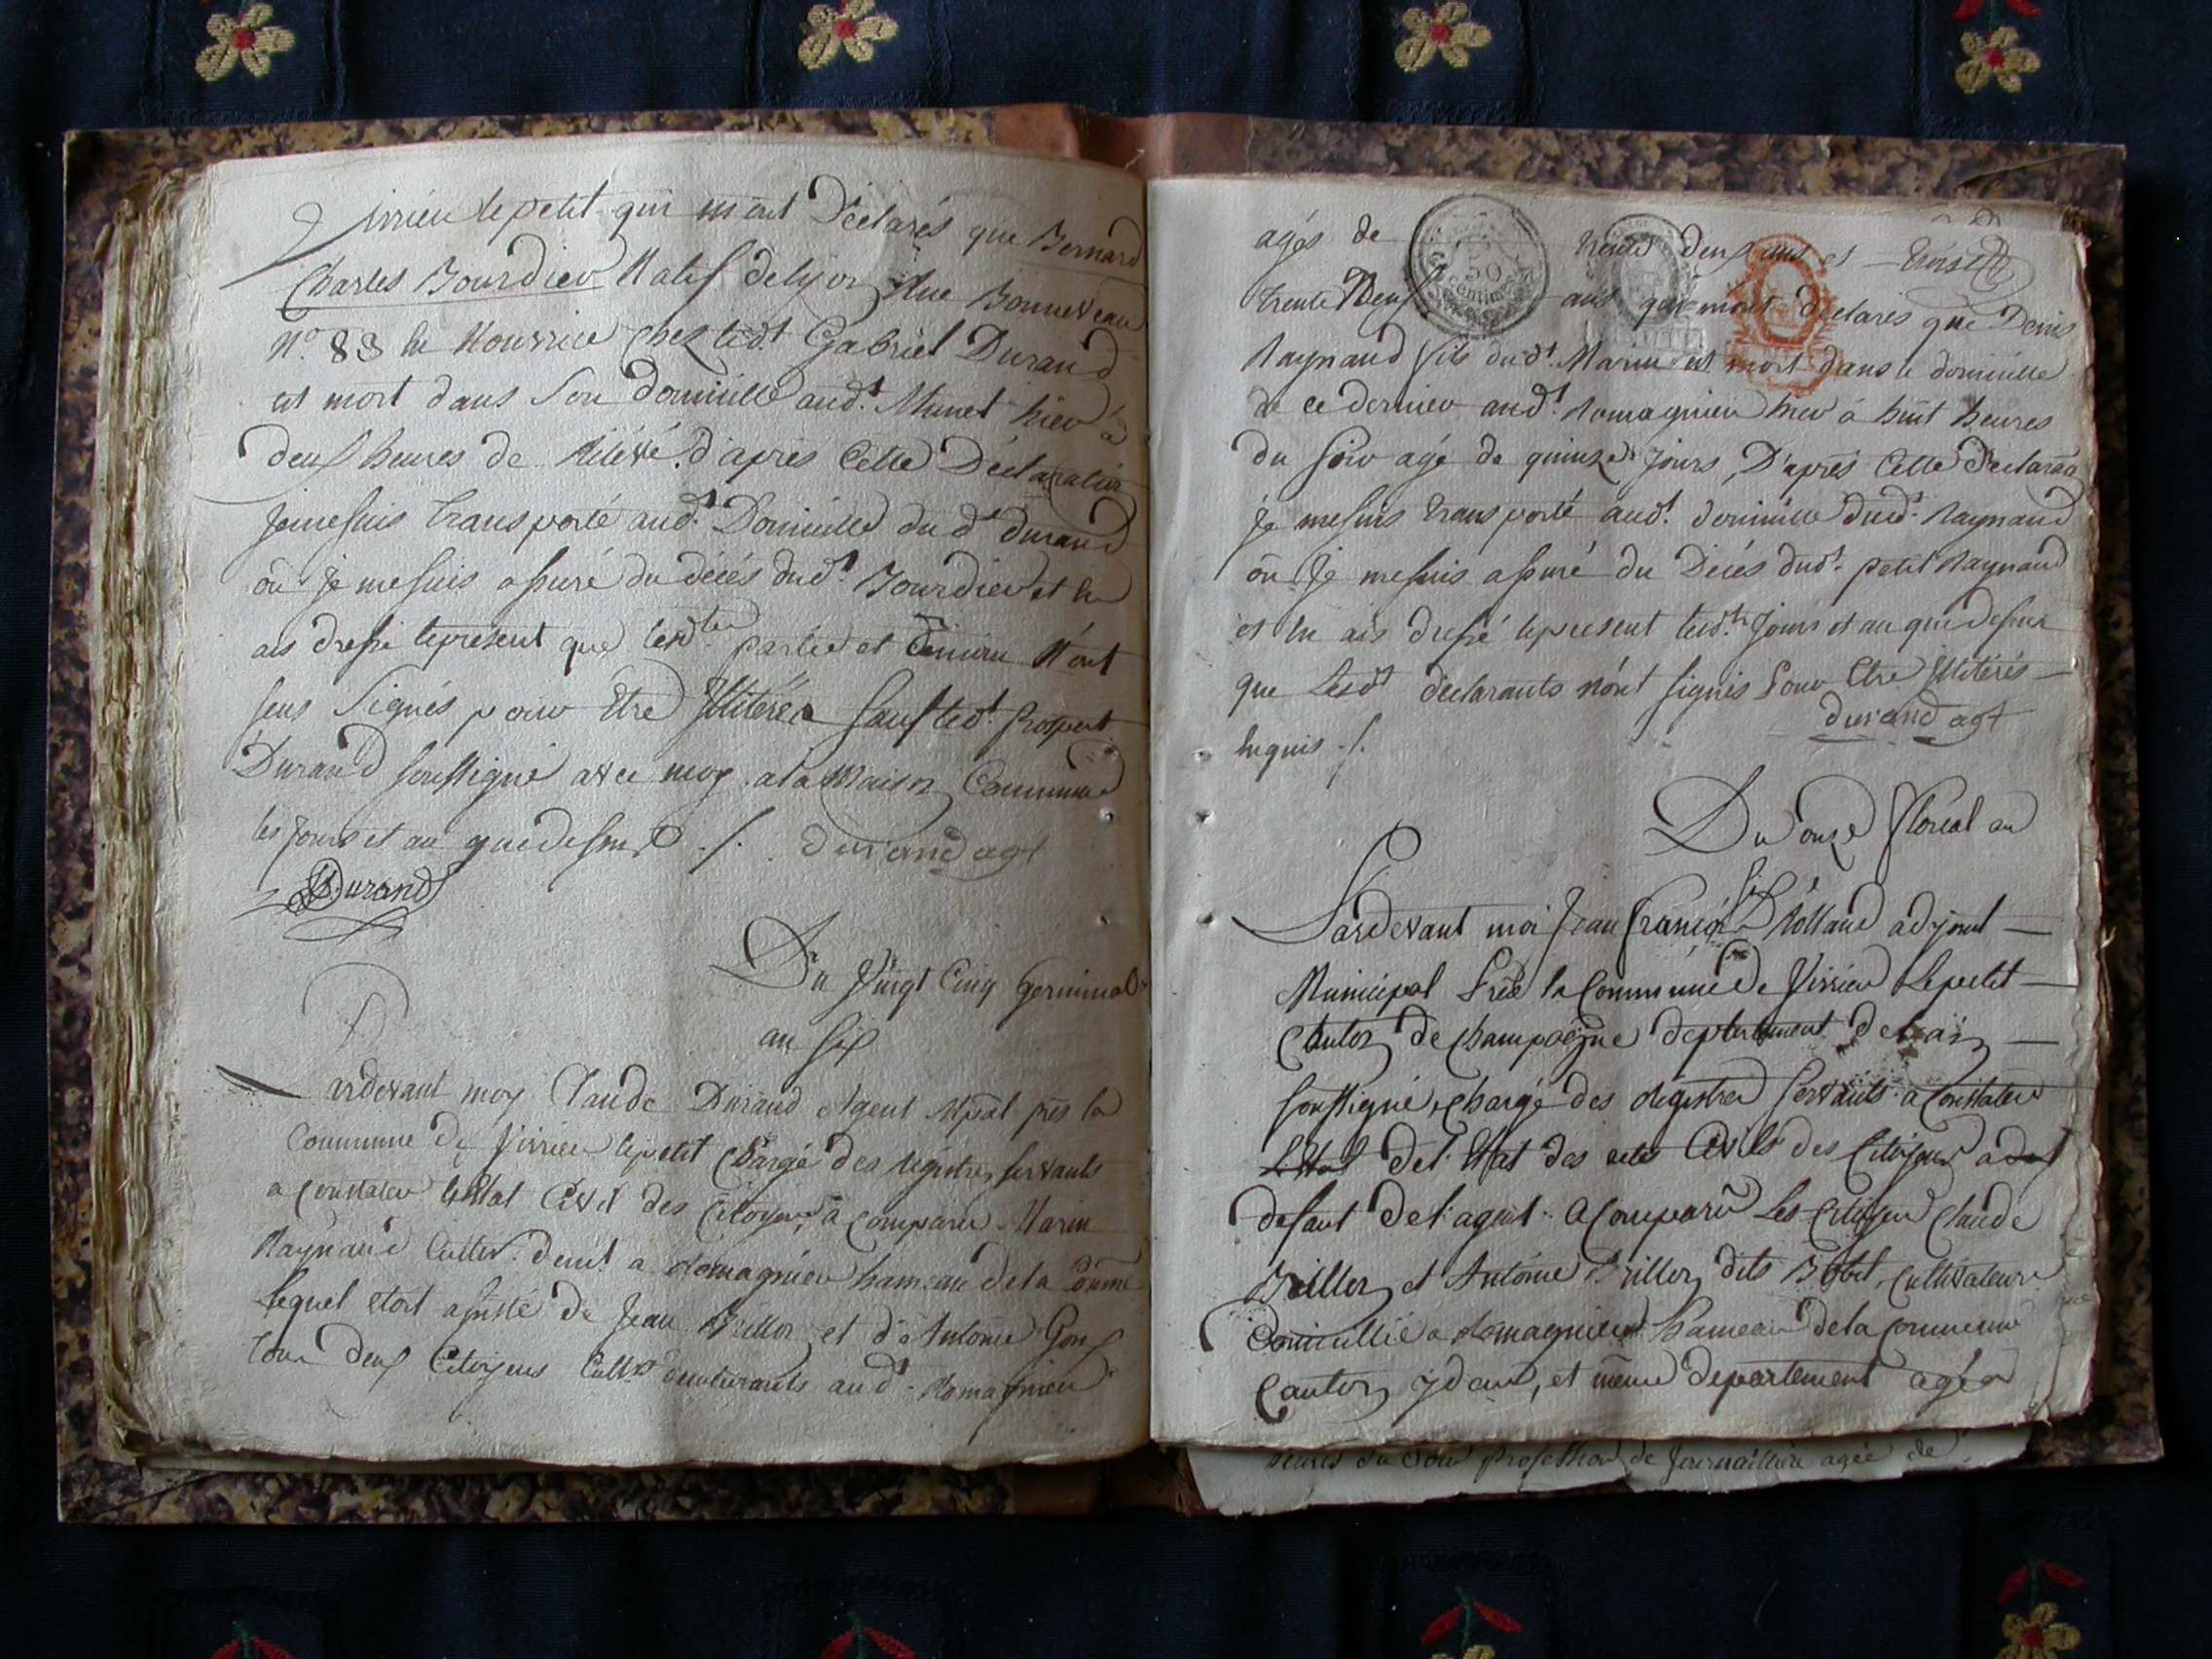 Virieu le petit qui m'ont Déclarés que Bernard
Charles Bourdier Natif de lyon Rue Bonneveau
N.° 83 En Nourrice chez led.t Gabriel Durand
est mort dans son domicille aud.t Munet hier à
deux heures de Relevé. d'après Cette Déclaration
Je me suis transporté aud.t Domicille dud.t Durand
où je me suis assuré du décès dud.t Bourdier et En
ais dressé le présent que lesd.tes partie et témoin N'ont
sçus Signés pour Etre Illitérés sauf led.t Prosper
Durand soussigné avec moy. a la Maison Commune
les jours et an que dessus ./. durand agt
Durand
Du Vingt Cinq Germinal
an six
Pardevant moy Claude Durand Agent Mpal près la
Commune de Virieu le petit Chargé des Registres servants
a Constater l'Etat Civil des Citoyens, a comparu Marin
Raynaud Culter. demt. a Romagnieu hameau de la Comme
lequel etoit assisté de Jean Brillon et d'Antoine Gonf
tous deux Citoyens Cultrs demeurants aud.t Romagnieu
agés de trente deux ans et
trente Neuf ans qui m'ont déclarés que Denis
Raynaud fils dud.t Marin est mort dans le domicille
de ce dernier aud.t Romagnieu hier à huit heures
du soir agé de quinze jours, D'après Cette déclaraõn
Je me suis transporté aud.t domicille dud.t Raynaud
où Je me suis assuré du Décés dud.t petit Raynaud
et En ais dressé le présent lesd.ts Jours et an que dessus
que Lesd.ts déclarants n'ont signés Pour Etre Illitérés
Enquis ./. durand agt
Du onze floréal an
six
Pardevant moi Jean françois Rolland adjoint
Municipal Près la Commune de Virieu Le petit
Canton de Champagne departement de l'ain
soussigné, chargé des Registres servants a Constater
L'Etat de l'Etat des actes Civils des Citoyens a
defaut de l'agent. a Comparu Les Citoyens Claude
Brillon et Antoine Brillon dits Bobet, Cultivateurs
Domicillié a Romagnieu hameau de la commune
Canton ydem, et même departement agés
heures du Soir profession de journaillière agée de